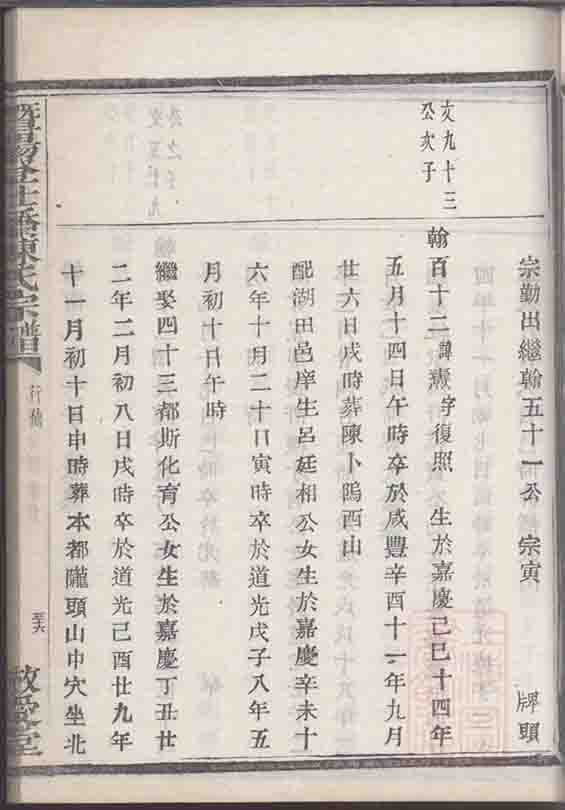 宗勤出繼翰五十一公 宗寅 牌頭
文九十三
公次子
翰百十二諱燾字復照 生於嘉慶己巳十四年
五月十四日午時卒於咸豐辛酉十一年九月
廿六日戌時葬陳卜塢西山
配湖田邑庠生呂廷相公女生於嘉慶辛未十
六年十月二十日寅時卒於道光戊子八年五
月初十日午時
繼娶四十三都斯化育公女生於嘉慶丁丑廿
二年二月初八日戌時卒於道光己酉廿九年
十一月初十日申時葬本都隴頭山中穴坐北
暨陽 陳氏宗譜
行傳
敬愛堂